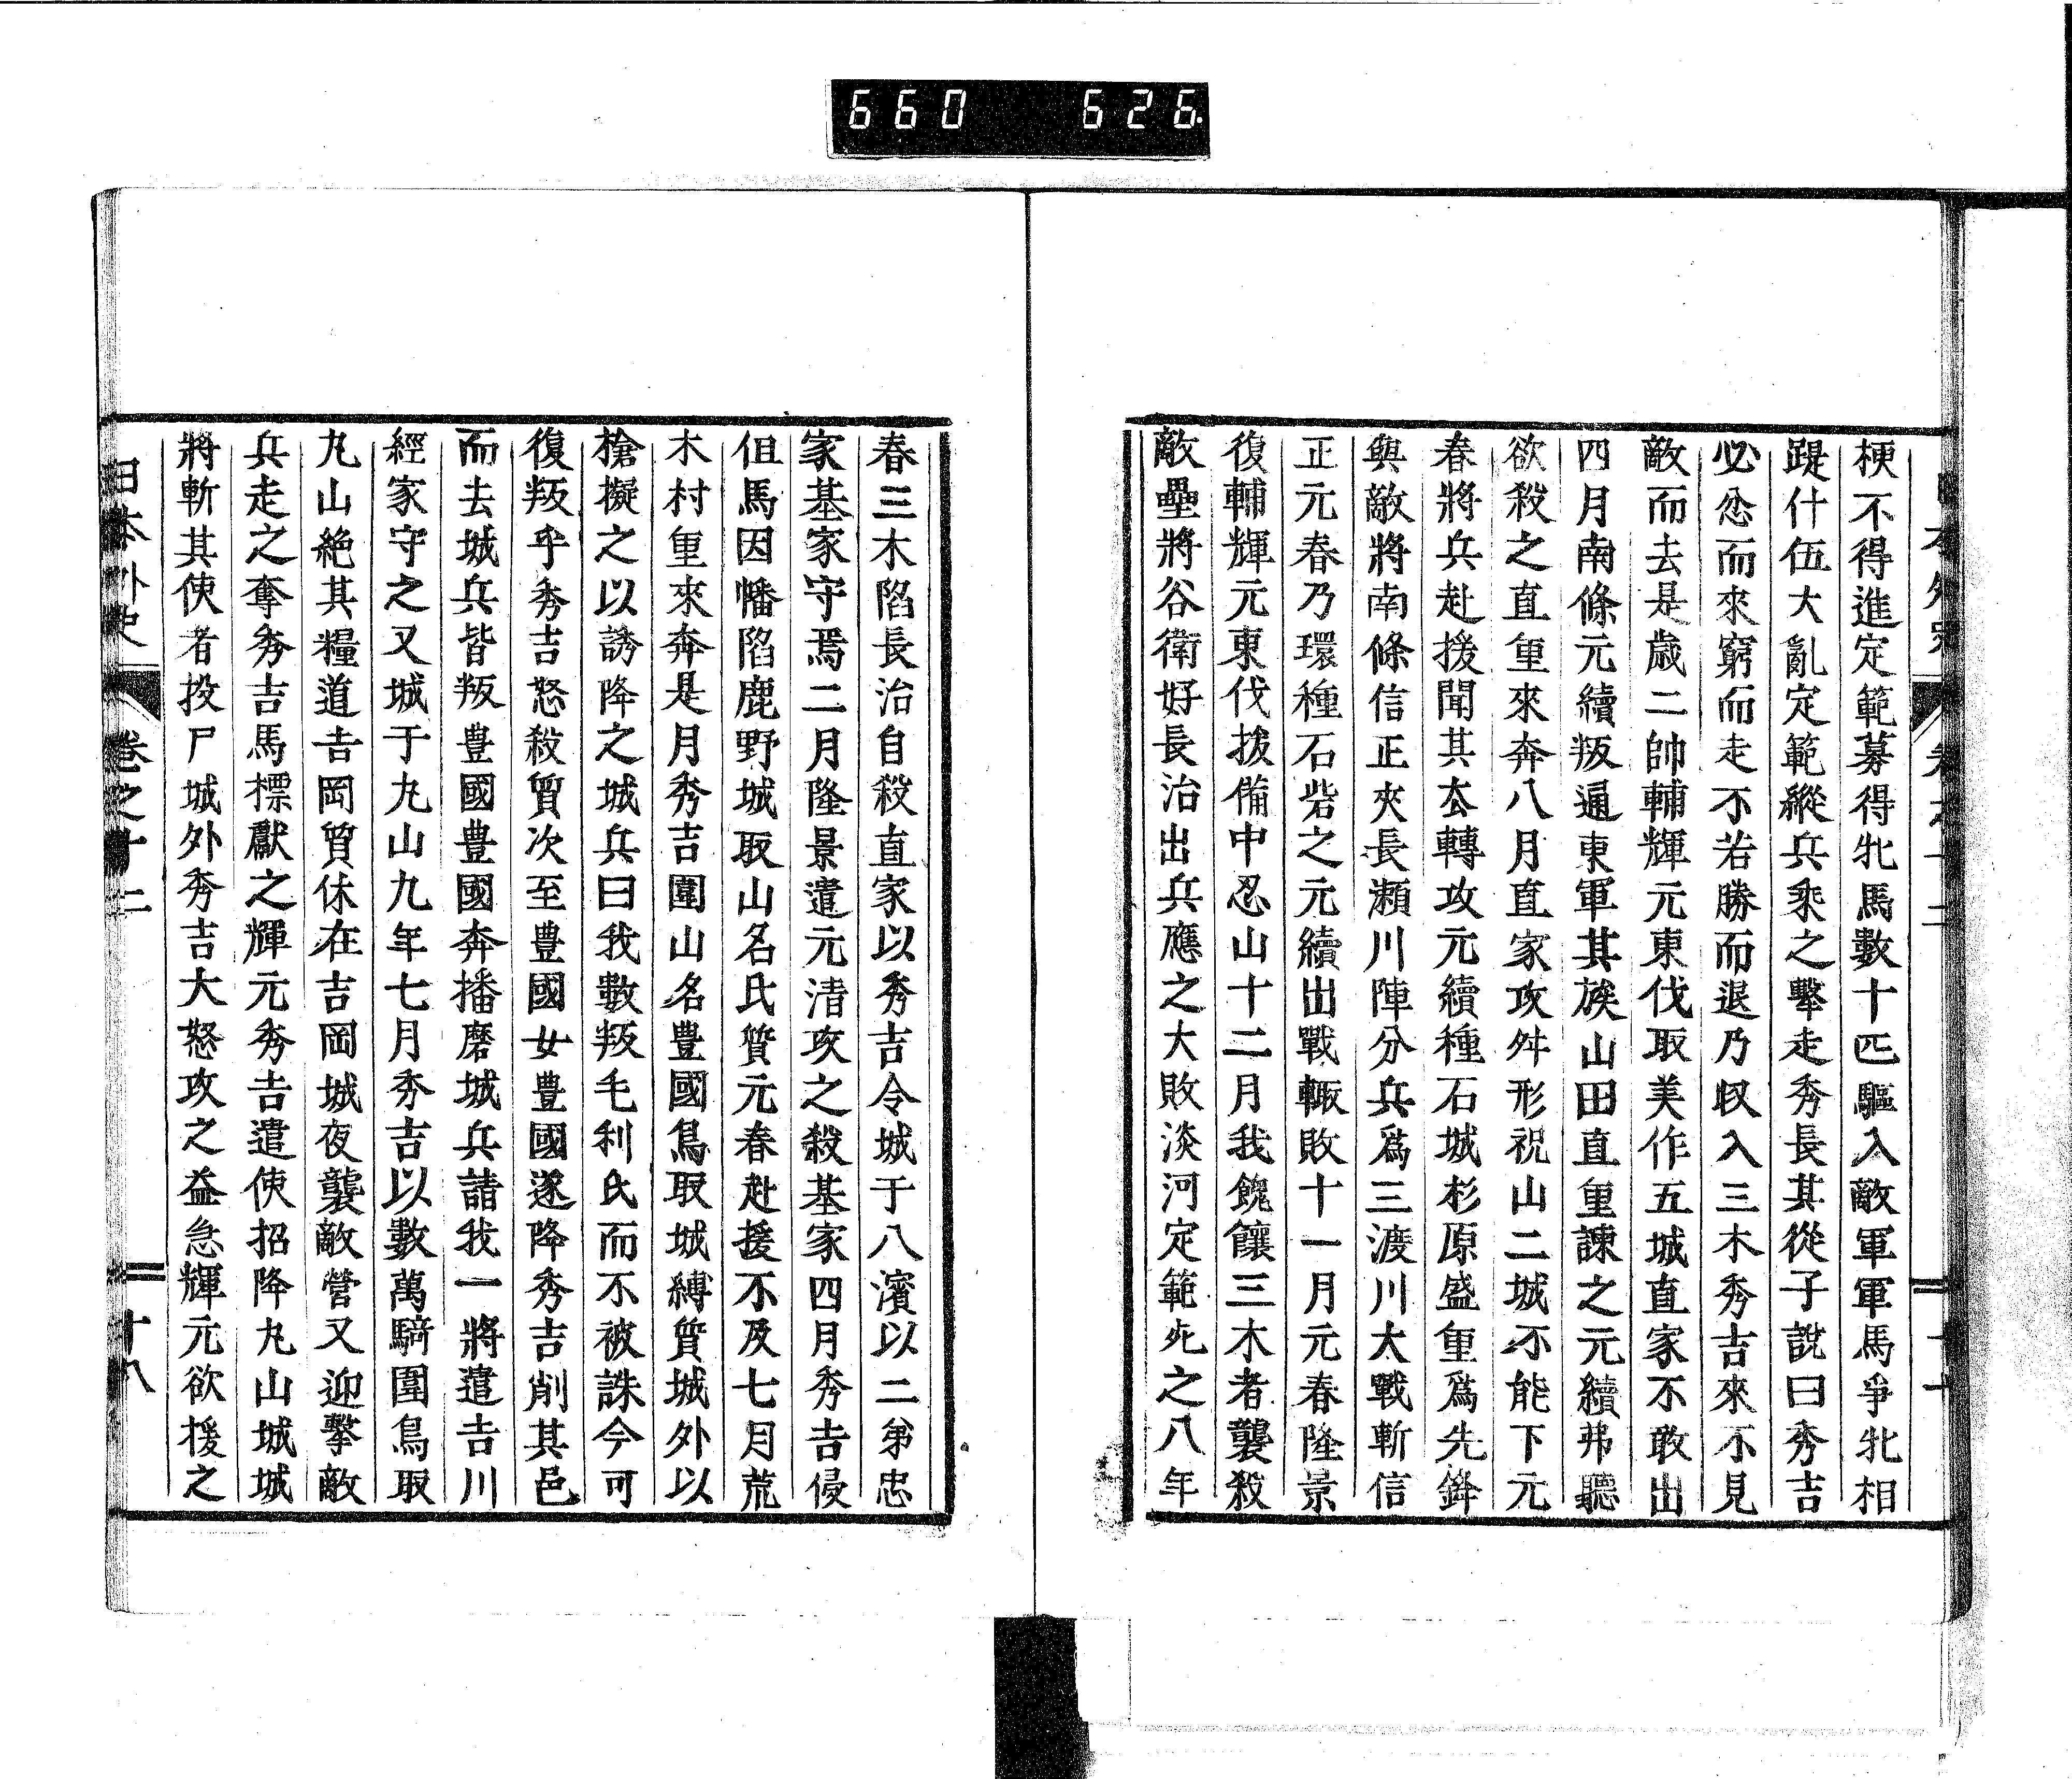 660 626
梗不得進定範募得牝馬數十匹驅入敵軍軍馬爭牝相
踶什伍大亂定範縱兵乘之擊走秀長其從子說曰秀吉
必忿而來窮而走不若勝而退乃収入三木秀吉來不見
敵而去是歳二帥輔輝元東伐取美作五城直家不敢出
四月南條元續叛通東軍其族山田直重諫之元續弗聽
欲殺之直重來奔八月直家攻舛形祝山二城不能下元
春將兵赴援聞其厺轉攻元續種石城杉原盛重爲先鋒
與敵將南條信正夾長瀬川陣分兵爲三渡川大戰斬信
正元春乃環種石砦之元續出戰輙敗十一月元春隆景
復輔輝元東伐拔備中忍山十二月我餽饟三木者襲殺
敵壘將谷衛好長治出兵應之大敗淡河定範死之八年
春三木陷長治自殺直家以秀吉令城于八濱以二弟忠
家基家守焉二月隆景遣元清攻之殺基家四月秀吉侵
但馬因幡陷鹿野城取山名氏質元春赴援不及七月荒
木村重來奔是月秀吉圍山名豊國鳥取城縛質城外以
槍擬之以誘降之城兵曰我數叛毛利氏而不被誅今可
復叛乎秀吉怒殺質次至豊國女豊國遂降秀吉削其邑
而去城兵皆叛豊國豊國奔播磨城兵請我一將遣吉川
經家守之又城于丸山九年七月秀吉以數萬騎圍鳥取
丸山絶其糧道吉岡質休在吉岡城夜襲敵營又迎擊敵
兵走之奪秀吉馬標獻之輝元秀吉遣使招降丸山城城
將斬其使者投尸城外秀吉大怒攻之益急輝元欲援之
日本外史 卷之十二 十八